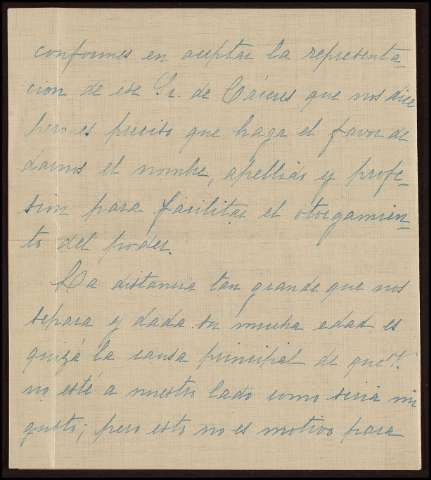 conformes en aceptar la representa-
cion de ese Sr. de Cáceres que nos dice
pero es preciso que haga el favor de
darnos el nombre, apellidos y profe-
sion para facilitar el otorgamien-
to del poder.
La distancia tan grande que nos
separa y dada su mucha edad es
quizá la causa principal de que V.
no este a nuestro lado como seria mi
gusto; pero esto no es motivo para